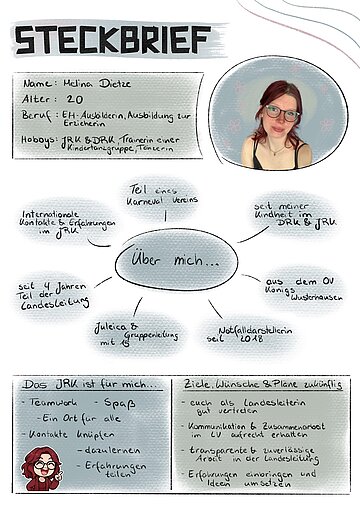 STECKBRIEF
Name: Melina Dietze
Alter: 20
Beruf: EH-Ausbilderin, Ausbildung zur
Erzieherin
Hobbys: JRK & DRK, Trainerin einer
Kindertanzgruppe, Tänzerin
Teil eines
Karneval Vereins
Internationale
Kontakte & Erfahrungen
im JRK
seit meiner
Kindheit im
DRK & JRK
Über mich...
seit 4 Jahren
Teil der
Landesleitung
aus dem OV
Königs
Wusterhausen
Juleica &
Gruppenleitung
mit
Notfalldarstellerin
seit 2018
Das JRK ist für mich...
- Teamwork - Spaß
- Ein Ort für alle
- Kontakte knüpfen
- dazulernen
- Erfahrungen
teilen
Ziele, Wünsche & Pläne zukünftig
- euch als Landesleiterin
gut vertreten
- Kommunikation & Zusammenarbeit
im LV aufrecht erhalten
- transparente & zuverlässige
Arbeit in der Landesleitung
- Erfahrungen einbringen und
Ideen umsetzen